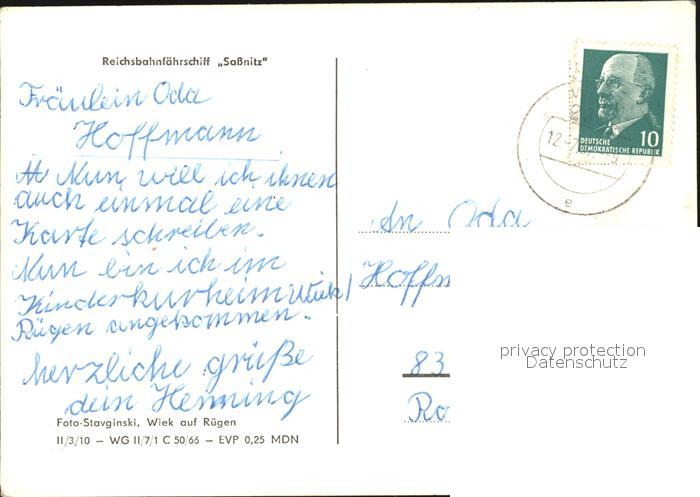 Reichsbahnfährschiff „Saßnitz"
Fräulein Oda
Hoffmann
Nun, will ich ihnen
auch einmal eine
Karte schreiben.
Nun bin ich im
Kinderkurheim Wiek/
Rügen angekommen.
herzliche grüße
dein Henning
Foto-Stavginski, Wiek auf Rügen
II/3/10 — WG II/7/1 C 50/66 — EVP 0,25 MDN
10
DEUTSCHE
DEMOKRATISCHE REPUBLIK
12.
e
An Oda
Hoffm
83
Ro
privacy protection
Datenschutz